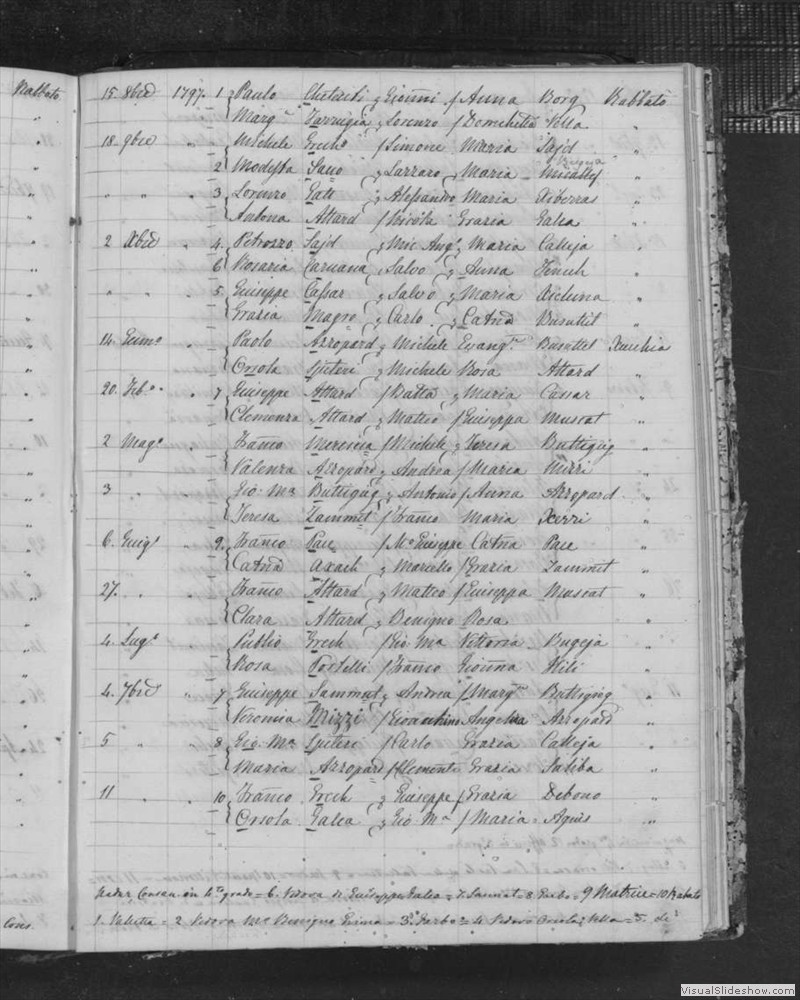 Rabbato
15 8bre 1797. 1 Paulo Chetcuti Gioanni Anna Borg Rabbato
Marg.a Farrugia Lorenzo Domenica Vella "
18. 9bre " Michele Grech Simone Maria Sajd "
Bugeja
2 Modesta Lazzaro Maria Micallef "
" " " 3 Lorenzo Gatt Alessandro Maria Xiberras "
Antona Attard Nicola Grazia Galea "
2 Xbre " 4. Petrozzo Sajd Mic. Ang. Maria Calleja "
6 Rosaria Caruana Salvo Anna Fenech "
" " " 5. Giuseppe Cassar Salvo Maria Xicluna "
Grazia Magro Carlo Catna Busuttil "
14. " Paolo Azzopard Michele Evang.ta Busuttil
Orsola Spiteri Michele Rosa Attard "
20. Feb.o " 7 Giuseppe Attard Batta Maria Cassar "
Clemenza Attard Matteo Giuseppa Muscat "
2 Mag.o " Franco Michele Teresa Buttigieg "
Valenza Azzopard Andrea Maria Mizzi "
3 " " Gio: Ma Buttigieg Antonio Anna Azzopard "
Teresa Zammit Franco Maria Xerri "
6. Giug.o " 9. Franco Pace Giuseppe Catna Pace "
Catna Axach Marcello Grazia Zammit "
27. " " Franco Attard Matteo Giuseppa Muscat "
Clara Attard Benigno Rosa "
4. Lug.o " Publio Grech Gio: Ma Vittoria Bugeja "
Rosa Portelli Franco Gioanna Hili "
4. 7bre " 7 Giuseppe Sammut Andrea Marg.a Buttigieg "
Veronica Mizzi Gioachino Angelica Azzopard "
5 " " 8 Gio: Ma Spiteri Carlo Grazia Calleja "
Maria Azzopard Clemente Grazia Saliba "
11 " " 10 Franco Grech Giuseppe Grazia Debono "
Orsola Galea Gio: Ma Maria Aquis "
in 4to grado = 6. Vedova di Giuseppe Galea = 7. Sannat = 8 = 9 Matrice = 10 Rabato
Cons. 1. Valletta = 2 Vedova Benigno = 3. Garbo = 4 Vedovo Orsola Vella = 5. de
VisualSlideshow.com